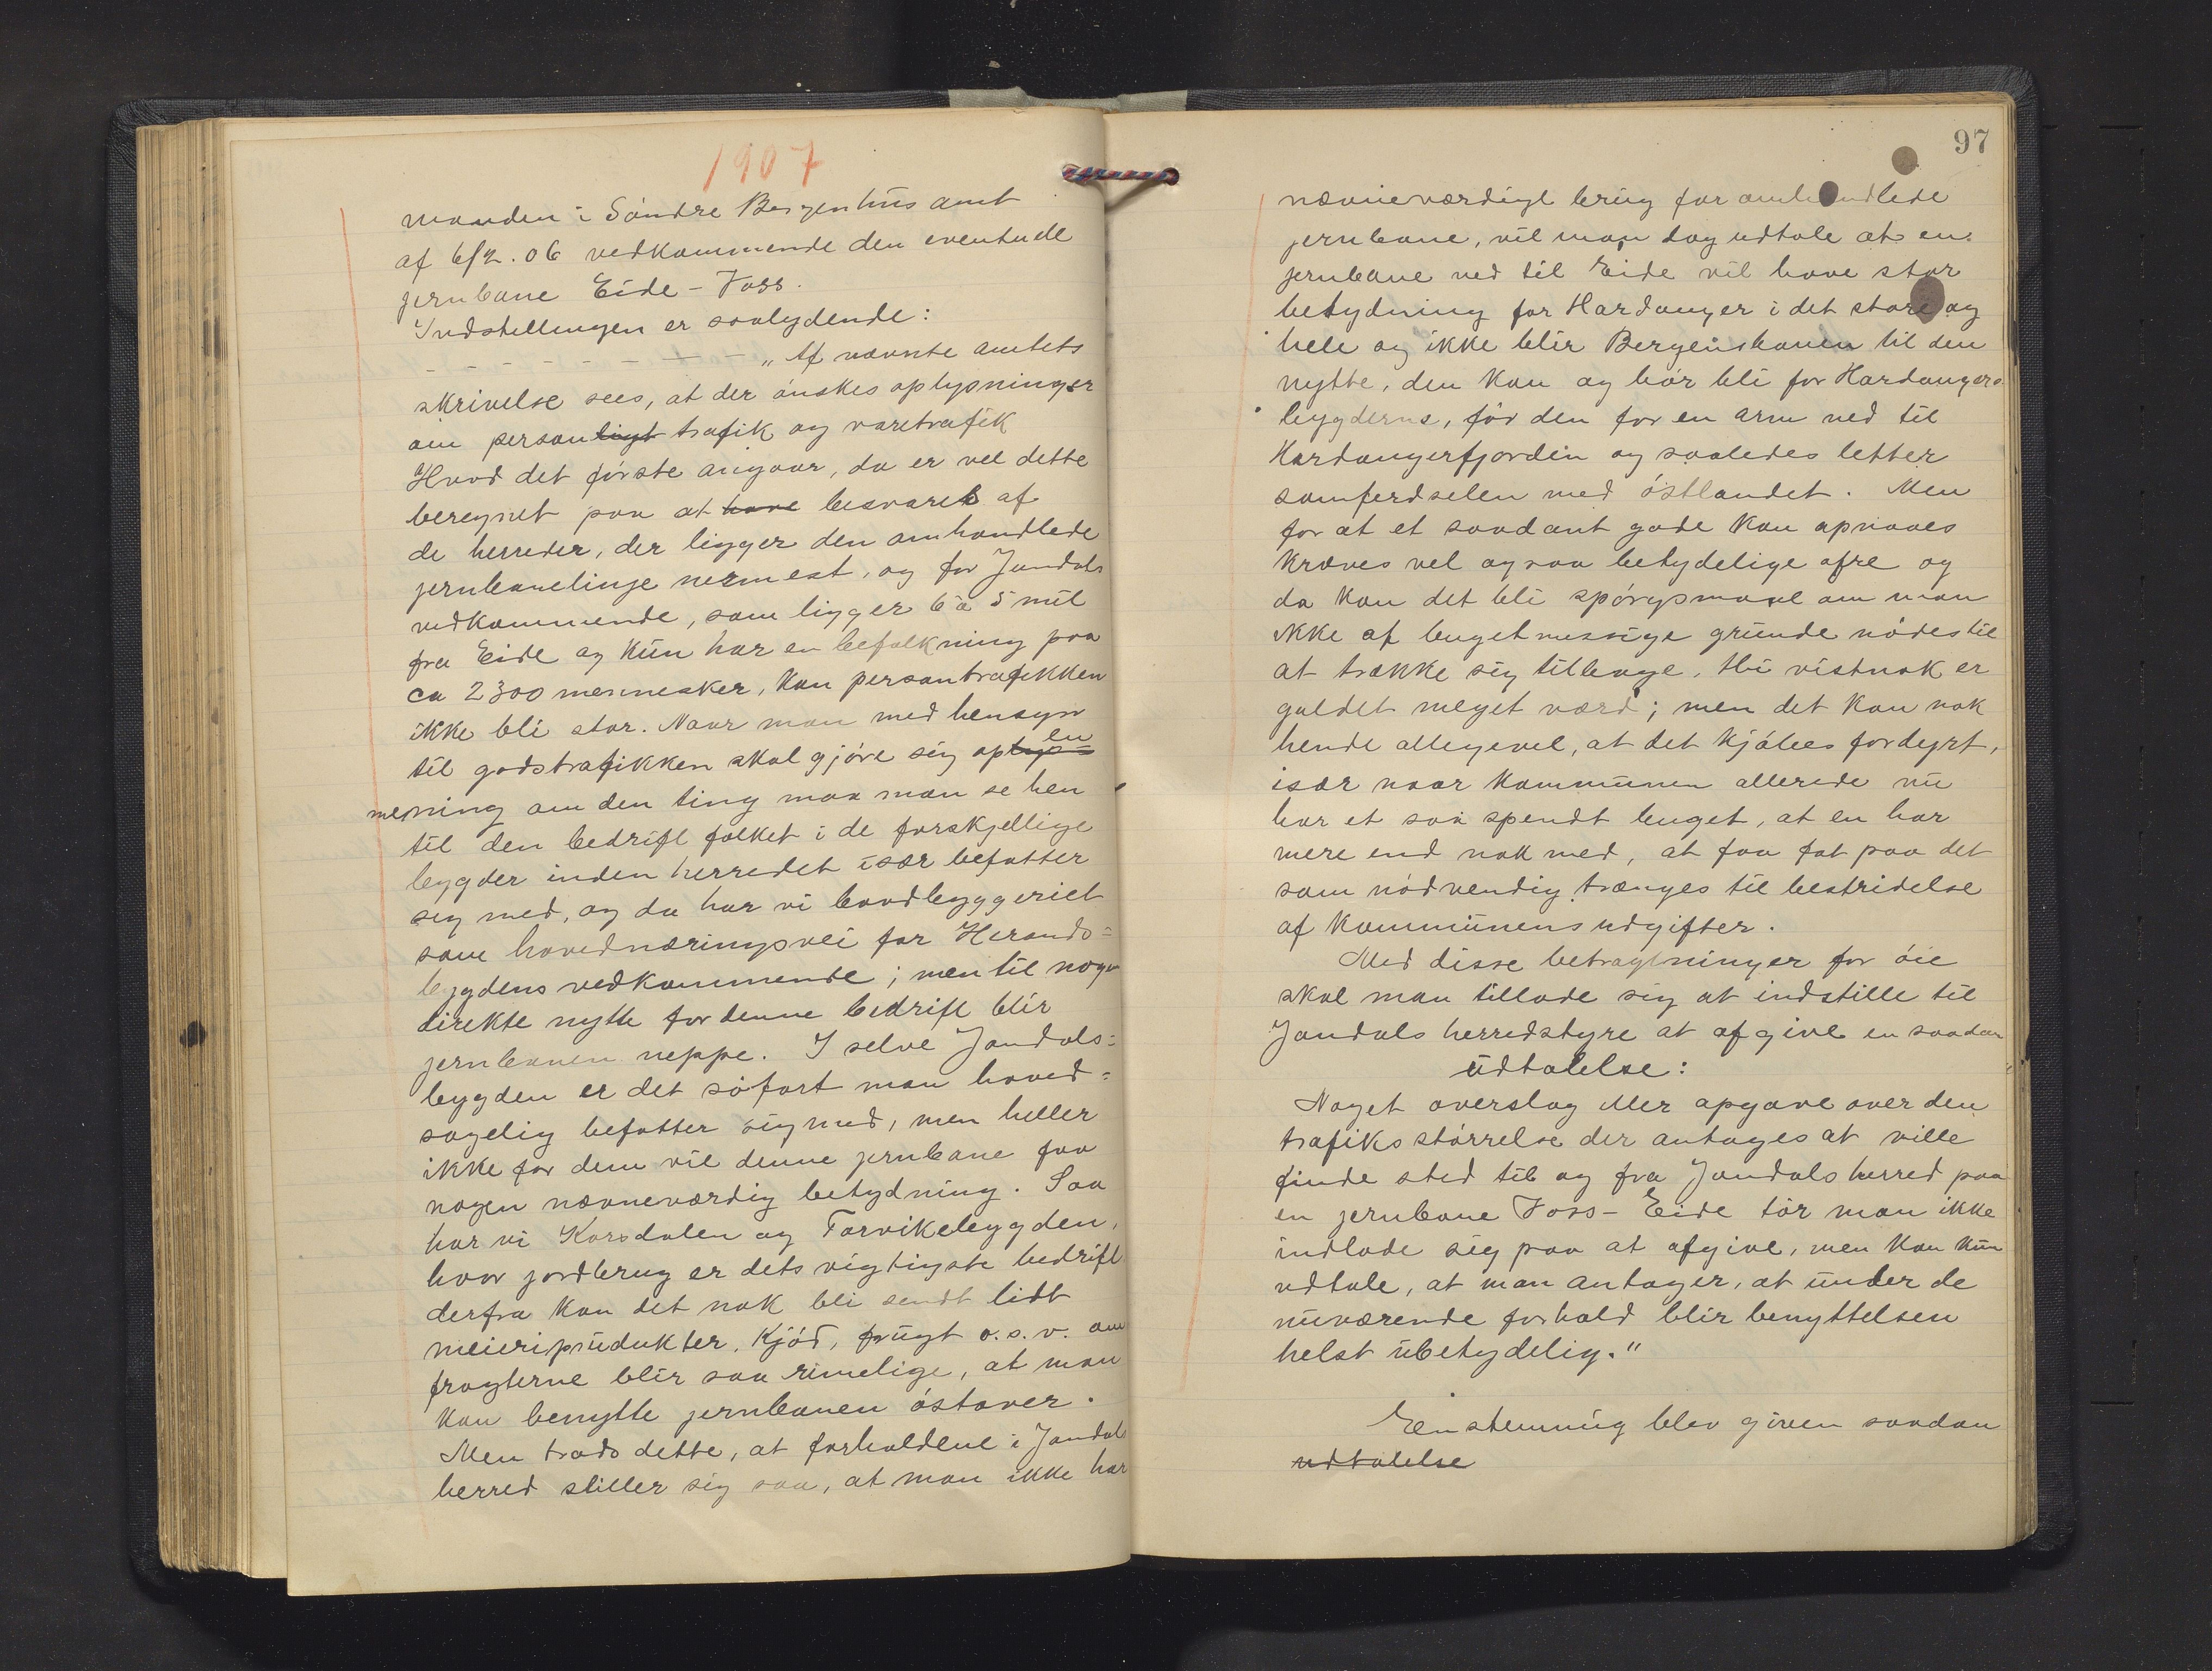 1907
manden i Söndre Bergenhus amt
af 6/2. 06 vedkommende den eventuelle
jernbane Eide - Voss.
Indstillingen er saalydende:
- - - - - - - - „Af nævnte amtets
skrivelse sees, at der ønskes oplysninger
om personligt trafik og varetrafik
Hvad det første angaar, da er vel dette
beregnet paa at have besvaret af
de herreder, der ligger den omhandlede
jernbanelinje nermest, og for Jondals
vedkommende, som ligger 6 à 5 mil
fra Eide og kun har en befolkning paa
ca 2300 mennesker, kan persontrafikken
ikke bli stor. Naar man med hensyn
til godstrafikken skal gjøre sig op lys= en
mening om den ting maa man se hen
til den bedrift folket i de forskjellige
bygder inden herredet især befatter
sig med, og da har vi baadbyggeriet
som hovednæringsvei for Herands=
bygdens vedkommende; men til nogen
direkte nytte for denne bedrift blir
jernbanen neppe. I selve Jondals=
bygden er det søfart man hoved=
sagelig befatter sig med, men heller
ikke for dem vil denne jernbane faa
nogen nævneværdig betydning. Saa
har vi Korsdalen og Torvikebygden,
hvor jordbrug er dets vigtigste bedrift
derfra kan det nok bli sendt lidt
meieriprudukter, kjød, frugt o. s. v. om
fragterne blir saa rimelige, at man
kan benytte jernbanen østover.
Men trods dette, at forholdene i Jondals
herred stiller sig saa, at man ikke har
97
nævneværdigt brug for omhandlede
jernbane, vil man dog udtale at en
jernbane ned til Eide vil have stor
betydning for Hardanger i det store og
hele og ikke blir Bergensbanen til den
nytte, den kan og bør bli for Hardangers
bygderne, før den for en arm ned til
Hardangerfjorden og saaledes letter
samferdselen med østlandet. Men
for at et saadant gode kan opnaaes
kræves vel ogsaa betydelige ofre og
da kan det bli spørgsmaal om man
ikke af bugetmessige grunde nødes til
at trække sig tilbage, thi vistnok er
godet meget værd; men det kan nok
hende allegevel, at det kjøbes fordyrt,
især naar kommunen allerede nu
har et saa spendt buget, at en har
mere end nok med, at faa fat paa det
som nødvendig trænges til bestridelse
af kommunens udgifter.
Med disse betragtninger for øie
skal man tillade sig at indstille til
Jondals herredstyre at afgive en saadan
udtalelse:
Noget overslag eller opgave over den
trafiks størrelse der antages at ville
finde sted til og fra Jondals herred paa
en jernbane Voss - Eide tør man ikke
indlade sig paa at afgive, men kan kun
udtale, at man antager, at under de
nuværende forhold blir benyttelsen
helst ubetydelig."
Enstemmig blev given saadan
udtalelse